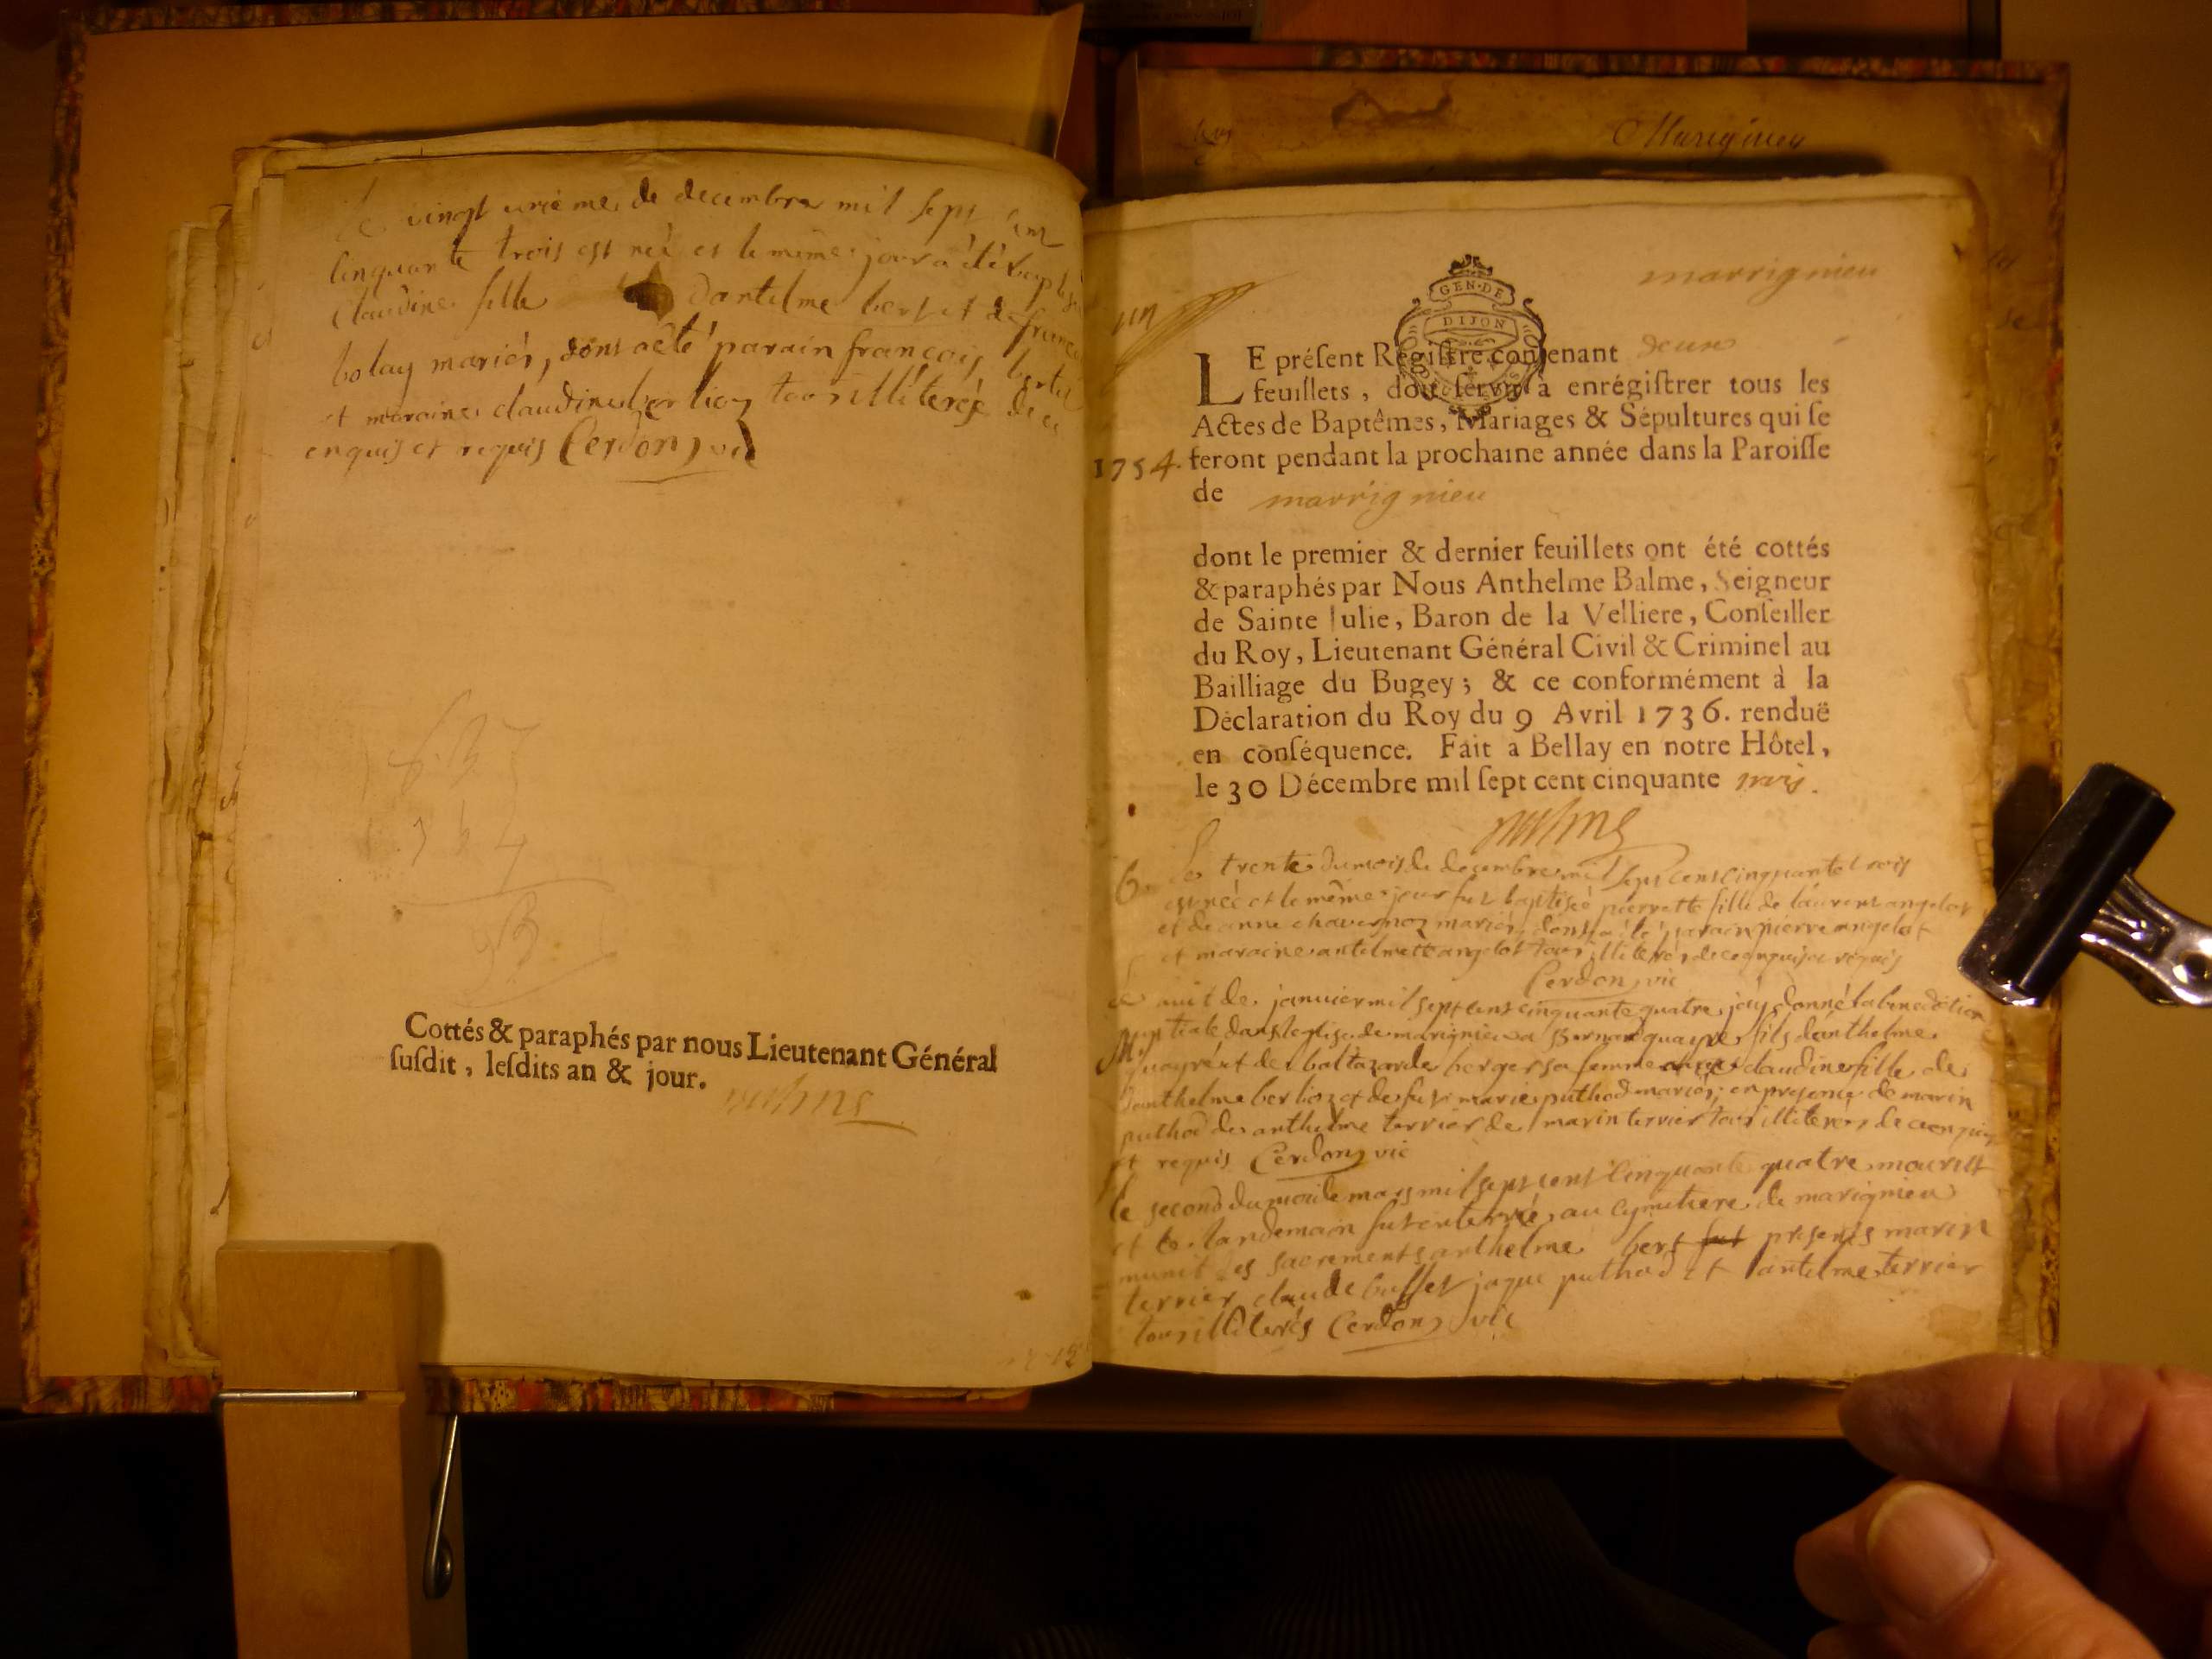 vingt unieme de decembre mil sept cent
cinquante trois est née et le même jour a été baptisée
Claudine fille dantelme bert et de
bolay mariés, dont acte parain françois
et maraine claudine berlioz tous illiterés de ce
enquis et requis Cerdon vic
Cottés & paraphés par nous Lieutenant Général
ſuſdit, leſdits an & jour.
Marignieu
marrignieu
GEN·DE
DIJON
un
LE préſent Régiſtre contenant deux
feuillets, doit ſervir à enrégiſtrer tous les
Actes de Baptêmes, Mariages & Sépultures qui ſe
1754. feront pendant la prochaine année dans la Paroiſſe
de marrignieu
dont le premier & dernier feuillets ont été cottés
& paraphés par Nous Anthelme Balme, Seigneur
de Sainte Julie, Baron de la Velliere, Conſeiller
du Roy, Lieutenant Général Civil & Criminel au
Bailliage du Bugey; & ce conformément à la
Déclaration du Roy du 9 Avril 1736. renduë
en conſéquence. Fait a Bellay en notre Hôtel,
le 30 Décembre mil ſept cent cinquante trois.
B. Le trente du mois de decembre mil sept cent cinquante trois
est née et le même jour fut baptisée pierrette fille de laurent angelot
et de anne chavernoz mariés, dont acte parain pierre angelot
et maraine antelmette angelot tous illiterés de ce enquis et requis
Cerdon vic
Le huit de janvier mil sept cent cinquante quatre jay donné la benediction
nuptiale dans leglise de marignieu a Bernard quayre fils danthelme
M. quayre et de baltazarde berger sa femme claudine fille de
danthelme berlioz et de fut marie puthod mariés; en presence de marin
puthod de anthelme terrier de marin terrier tous illiterés de ce enquis
et requis Cerdon vic
le second du mois de mars mil sept cent cinquante quatre mourut
et le landemain fut enterré au cymetiere de marignieu
munit des sacrements anthelme bert fut presents marin
terrier claude buffet jaque puthod et antelme terrier
tous illiterés Cerdon vic